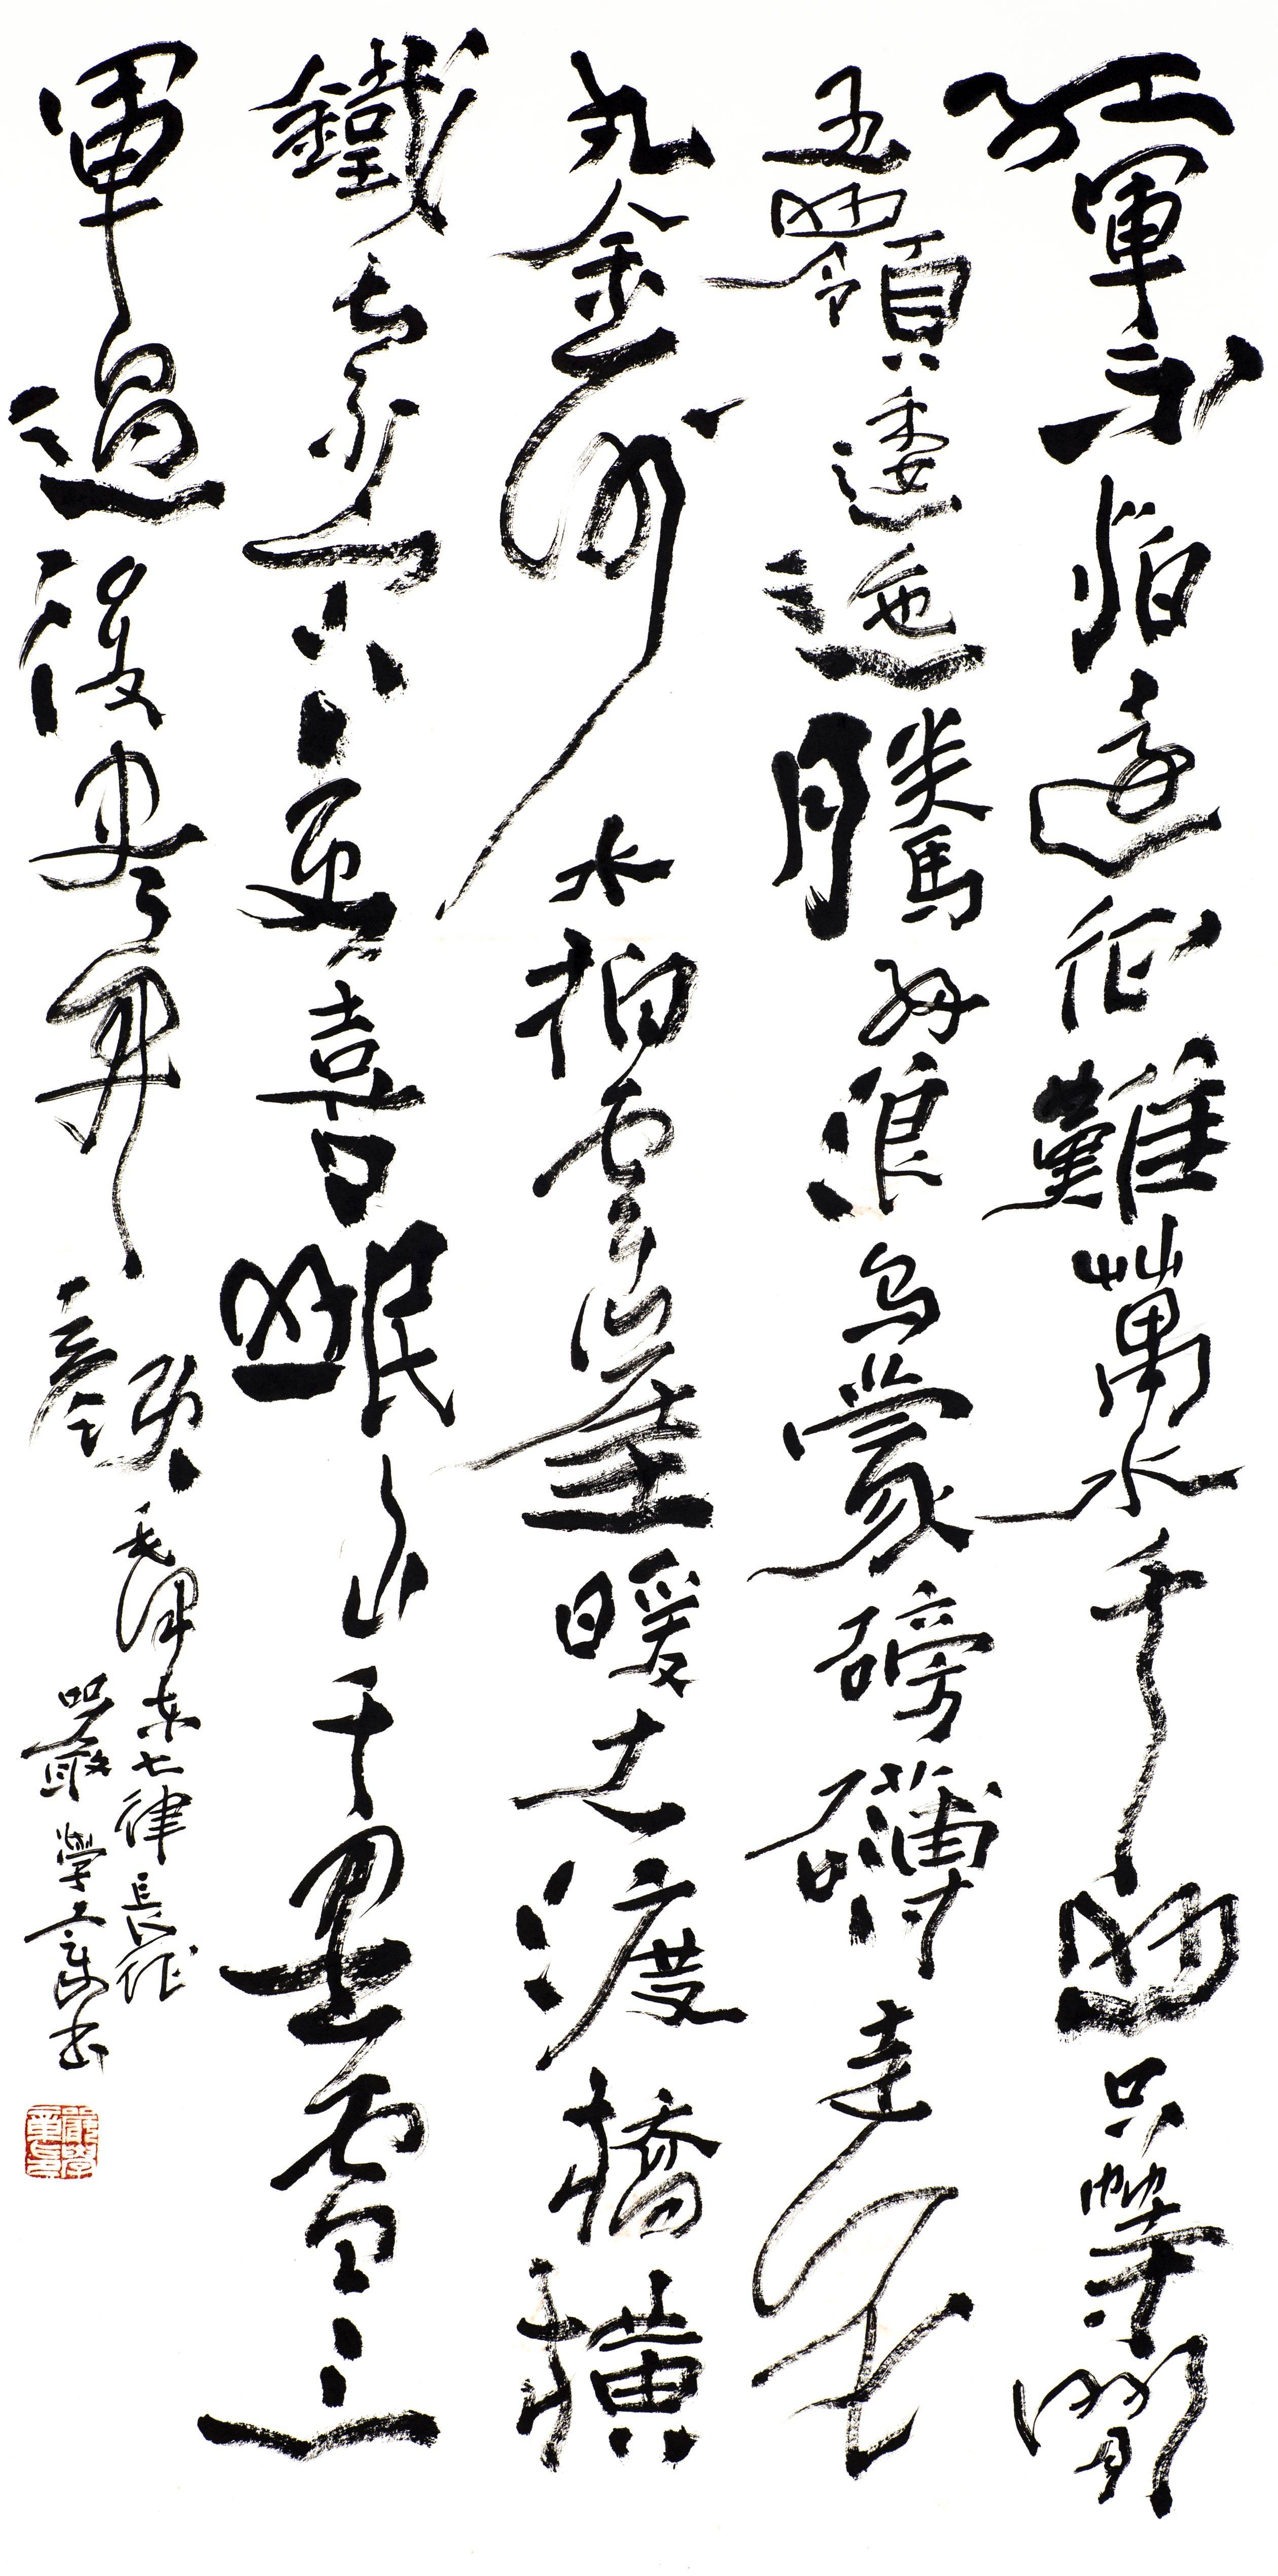 紅軍不怕遠征難萬水千山只等閒
五嶺逶迤騰細浪烏蒙磅礴走泥
丸金沙水拍雲崖暖大渡橋橫
鐵索寒更喜岷山千里雪三
軍過後盡開顏
毛澤东七律長征
嚴學章書
嚴學章印